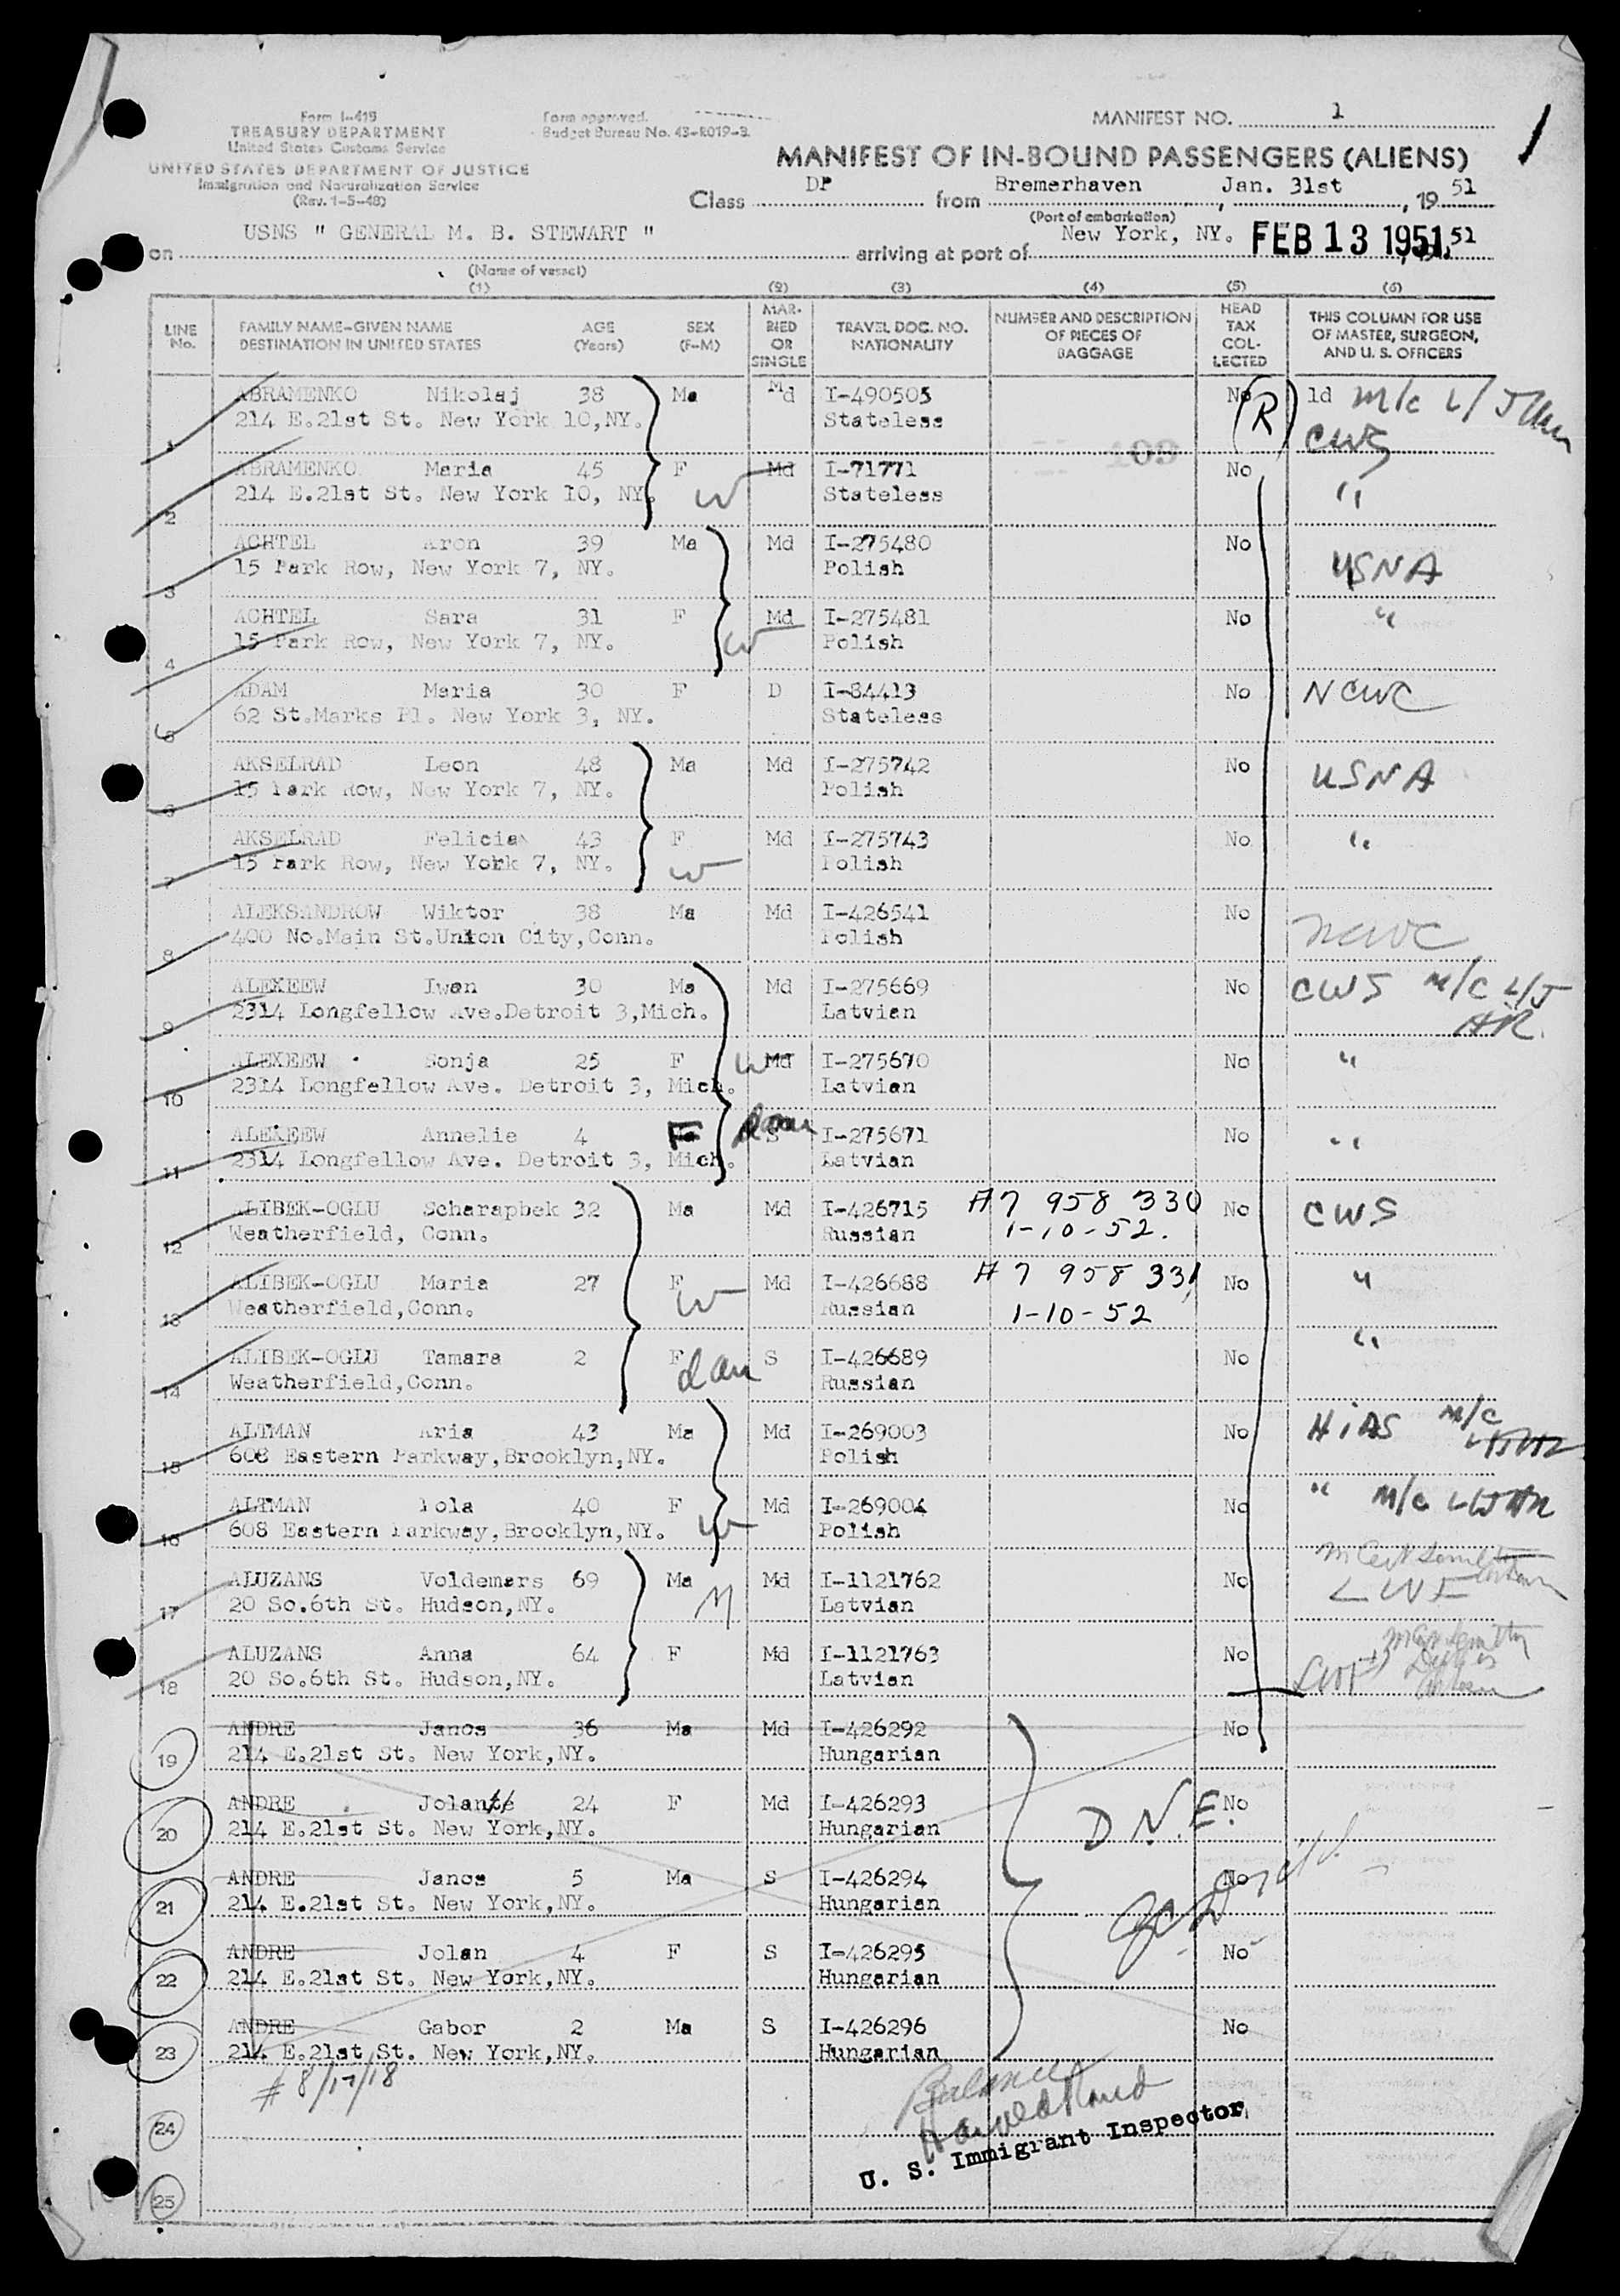 Form I-415
TREASURY DEPARTMENT
United States Customs Service
UNITED STATES DEPARTMENT OF JUSTICE
Immigration and Naturalization Service
(Rev. 1-5-48)
Form approved.
Budget Bureau No. 43-R019-3.
MANIFEST NO. 1
MANIFEST OF IN-BOUND PASSENGERS (ALIENS)
Class DP from Bremerhaven, Jan. 31st, 19 51
(Port of embarkation)
on USNS " GENERAL M. B. STEWART " arriving at port of New York, NY. FEB 13 1951 51
(Name of vessel)
(1) (2) (3) (4) (5) (6)
LINE No. FAMILY NAME-GIVEN NAME DESTINATION IN UNITED STATES AGE (Years) SEX (F-M) MARRIED OR SINGLE TRAVEL DOC. NO. NATIONALITY NUMBER AND DESCRIPTION OF PIECES OF BAGGAGE HEAD TAX COLLECTED THIS COLUMN FOR USE OF MASTER, SURGEON, AND U. S. OFFICERS
1 ABRAMENKO Nikolaj 38 Ma Md I-490505 No (R) ld M/C L/J
214 E.21st St. New York 10,NY. Stateless CWS
2 ABRAMENKO Maria 45 F W Md I-71771 No "
214 E.21st St. New York 10, NY. Stateless
3 ACHTEL Aron 39 Ma Md I-275480 No USNA
15 Park Row, New York 7, NY. Polish
4 ACHTEL Sara 31 F W Md I-275481 No "
15 Park Row, New York 7, NY. Polish
5 ADAM Maria 30 F D I-84413 No NCWC
62 St.Marks Pl. New York 3, NY. Stateless
6 AKSELRAD Leon 48 Ma Md I-275742 No USNA
15 Park Row, New York 7, NY. Polish
7 AKSELRAD Felicia 43 F W Md I-275743 No "
15 Park Row, New York 7, NY. Polish
8 ALEKSANDROW Wiktor 38 Ma Md I-426541 No NCWC
400 No.Main St.Union City,Conn. Polish
9 ALEXEEW Iwan 30 Ma Md I-275669 No CWS M/C L/J
2314 Longfellow Ave.Detroit 3,Mich. Latvian HR.
10 ALEXEEW Sonja 25 F W Md I-275670 No "
2314 Longfellow Ave. Detroit 3, Mich. Latvian
11 ALEXEEW Annelie 4 F dau S I-275671 No "
2314 Longfellow Ave. Detroit 3, Mich. Latvian
12 ALIBEK-OGLU Scharapbek 32 Ma Md I-426715 A7 958 330 No CWS
Weatherfield, Conn. Russian 1-10-52.
13 ALIBEK-OGLU Maria 27 F W Md I-426688 A7 958 331 No "
Weatherfield,Conn. Russian 1-10-52
14 ALIBEK-OGLU Tamara 2 F dau S I-426689 No "
Weatherfield,Conn. Russian
15 ALTMAN Aria 43 Ma Md I-269003 No HIAS M/C
608 Eastern Parkway,Brooklyn,NY. Polish
16 ALTMAN Lola 40 F W Md I-269004 No " M/C
608 Eastern Parkway,Brooklyn,NY. Polish
17 ALUZANS Voldemars 69 Ma M Md I-1121762 No
20 So.6th St. Hudson,NY. Latvian LWF
18 ALUZANS Anna 64 F Md I-1121763 No
20 So.6th St. Hudson,NY. Latvian LWF
19 ANDRE Janos 36 Ma Md I-426292 No
214 E.21st St. New York,NY. Hungarian
20 ANDRE Jolan 24 F Md I-426293 D.N.E. No
214 E.21st St. New York,NY. Hungarian
21 ANDRE Janos 5 Ma S I-426294 No
214 E.21st St. New York,NY. Hungarian
22 ANDRE Jolan 4 F S I-426295 No
214 E.21st St. New York,NY. Hungarian
23 ANDRE Gabor 2 Ma S I-426296 No
214 E.21st St. New York,NY. Hungarian
# 8/17/18
24
U. S. Immigrant Inspector
25